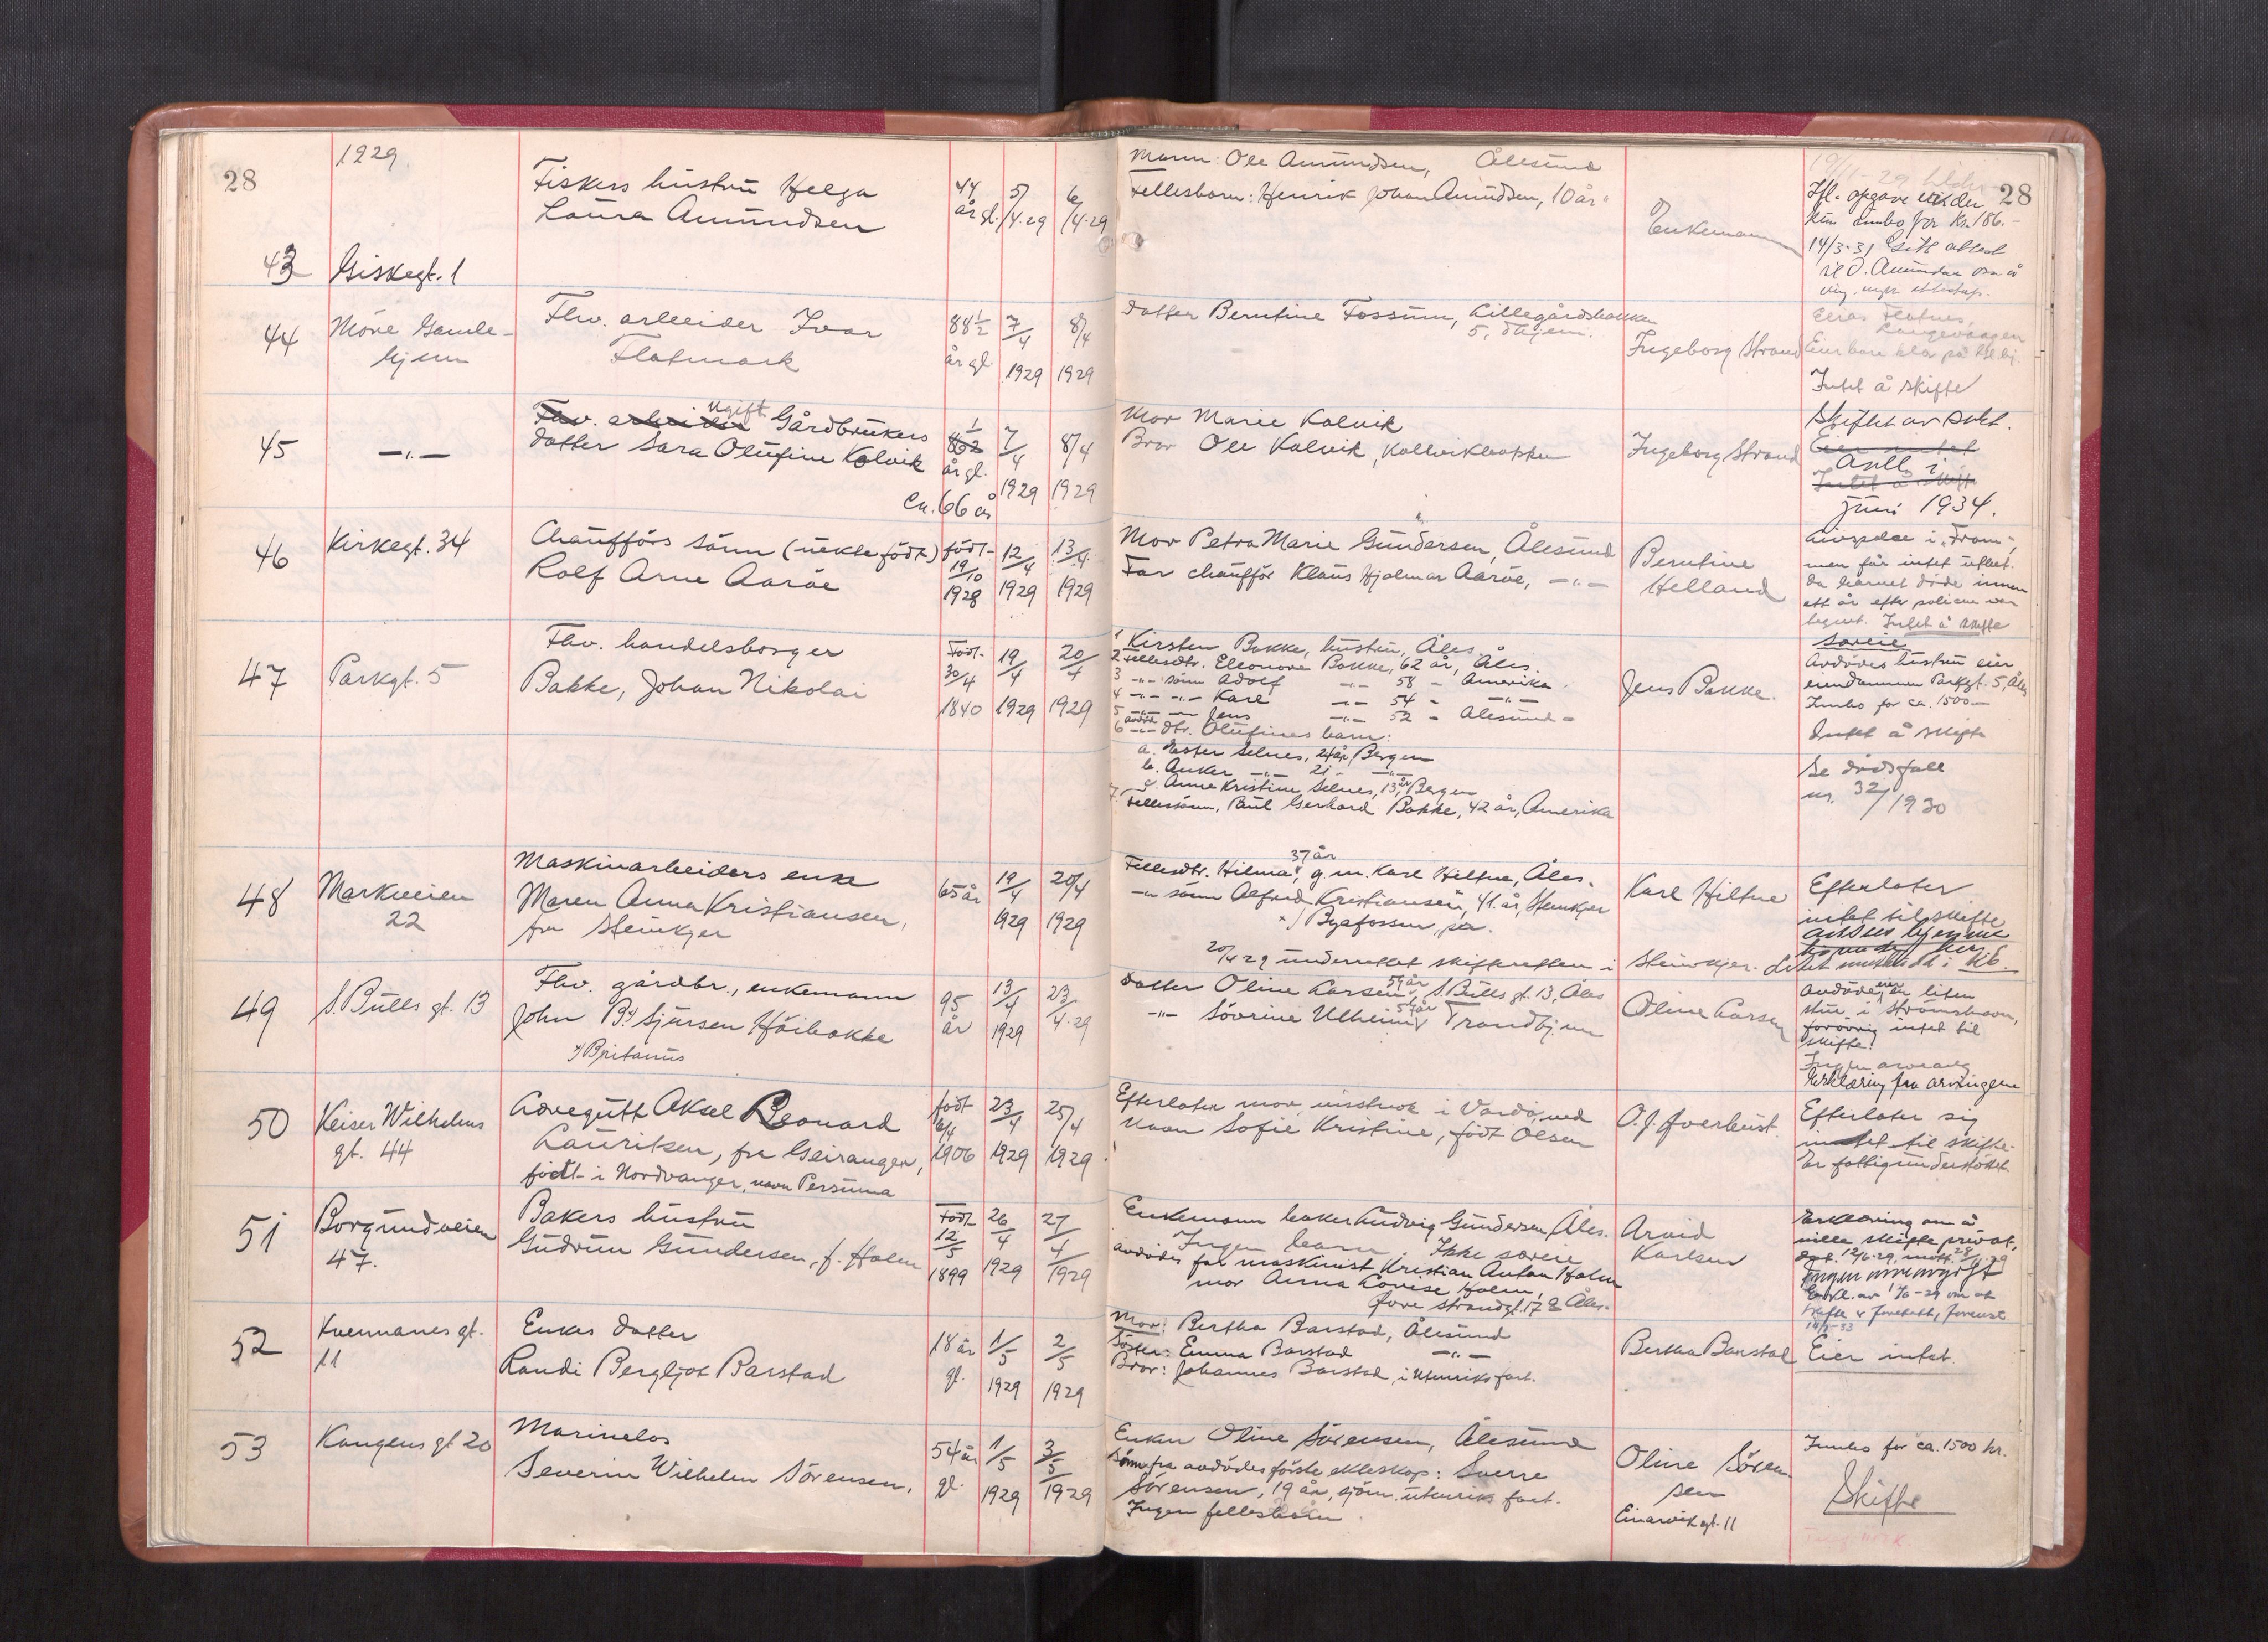 28
1929
43
Giskegt. 1
Fiskers hustru Helga
Laura Amundsen
44
år gl.
5/4-29
6/4-29
Mann: Ole Amundsen, Ålesund
Fellesbarn: Henrik Johan Amundsen, 10 år
Enkemann
28
Ifl. opgave
innbo for kr. 186.-
14/3-31
44
Möre Gamle-
hjem
Fhv. arbeider Ivar
Flatmark
88 1/2
år gl.
7/4
1929
8/4
1929
Datter Berntine Fossum, Lillegårdsbakken
5, Thjem.
Ingeborg Strand
Intet å skifte
45
-"-
Fhv. arbeider Ugift Gårdbrukers
datter Sara Olufine Kolvik
år gl.
ca. 66 år
7/4
1929
8/4
1929
Mor Marie Kalvik
Bror Ole Kalvik,
Ingeborg Strand
Skiftet av
Eier intet
Intet å skifte
juni 1934.
46
Kirkegt. 34
Chaufförs sönn (uekte födt)
Rolf Arne Aaröe
födt
19/10
1928
12/4
1929
13/4
1929
Mor Petra Marie Gundersen, Ålesund
Far chaufför Klaus Hjalmar Aaröe, -"-
Berntine
Helland
i "Fram",
men får intet utbet.
da barnet döde innen
ett år efter policen var
tegnet. Intet å skifte
47
Parkgt. 5
Fhv. handelsborger
Bakke, Johan Nikolai
Födt
30/4
1840
19/4
1929
20/4
1929
1 Kirsten Bakke, hustru, Åles.
2 Fellesdtr. Eleonora Bakke, 62 år, Åles.
3 -"- sönn Adolf -"- 58 - Amerika.
4 -"- -"- Karl -"- 54 - -"-
5 -"- -"- Jens -"- 52 - Ålesund -
6 avdöde -"- dtr. Olufines barn:
a. Ester Selnes, 24 år, Bergen
b. Anker -"- 21 - -"-
c. Anna Kristine Selnes, 13 år, Bergen
7. Fellessönn, Paul Gerhard Bakke, 42 år, Amerika
Jens Bakke.
Særeie
Avdödes hustru eier
eiendommen Parkgt. 5, Åles
Innbo for ca. 1500.-
Intet å skifte
Se dödsfall
nr. 32/1930
48
Markveien
22
Maskinarbeiders enke
Maren Anna Kristiansen,
fra Steinkjer
65 år
19/4
1929
20/4
1929
37 år
Fellesdtr. Hilma, g.m. Karl Hiltne, Åles.
-"- sönn Alfred Kristiansen, 41 år, Steinkjer
x/ Byafossen,
20/4 29 underrettet skifteretten i Steinkjer.
Karl Hiltne
Efterlater
intet til skifte
49
S. Bulls gt. 13
Fhv. gårdbr., enkemann
John B. x) Sjursen Höibakke
x/ Britanus
95
år
13/4
1929
23/4-29
Datter Oline Larsen 59 år, S. Bulls gt. 13, Åles
-"- Sövrine Ulheim 54 år Trondhjem
Oline Larsen
Avdöde eier en liten
stue i
forövrig intet til
skifte.
Erklæring fra arvingene
50
Keiser Wilhelms
gt. 44
Læregutt Aksel Leonard
Lauritsen, fra Geiranger,
födt i Nordvanger, navn Persuma
födt
1906
23/4
1929
25/4
1929
Efterlater mor, visstnok i Vardö, ved
navn Sofie Kristine, födt Olsen
O. J. Överhust
Efterlater sig
intet til skifte.
Er fattigunderstöttet.
51
Borgundveien
47.
Bakers hustru
Gudrun Gundersen, f. Holm
Födt
12/5
1899
26/4
1929
27/4
1929
Enkemann baker Ludvig Gundersen, Åles.
Ingen barn. Ikke særeie
Avdödes far maskinist Kristian Antan Holm
mor Anna Lovise Holm,
Övre Strandgt. 17 Åles.
Arvid
Karlsen
Erklæring om å
ville skifte privat,
dat. 12/6-29,
Ingen arveavgift
52
Kvennanes gt.
11
Enkes datter
Randi Bergljot Barstad
18 år
gl.
1/5
1929
2/5
1929
Mor: Bertha Barstad, Ålesund
Söster: Emma Barstad -"-
Bror: Johannes Barstad, i utenriksfart.
Bertha Barstad
Eier intet.
53
Kongens gt 20
Marinelos
Severin Wilhelm Sörensen.
54 år
gl.
1/5
1929
3/5
1929
Enken Oline Sörensen, Ålesund
Sönn fra avdödes förste ekteskap: Sverre
Sörensen, 19 år, sjöm. utenriks fart.
Ingen fellesbarn
Oline Sören-
sen
Einarvikgt. 11
Innbo for ca. 1500 kr.
Skifte